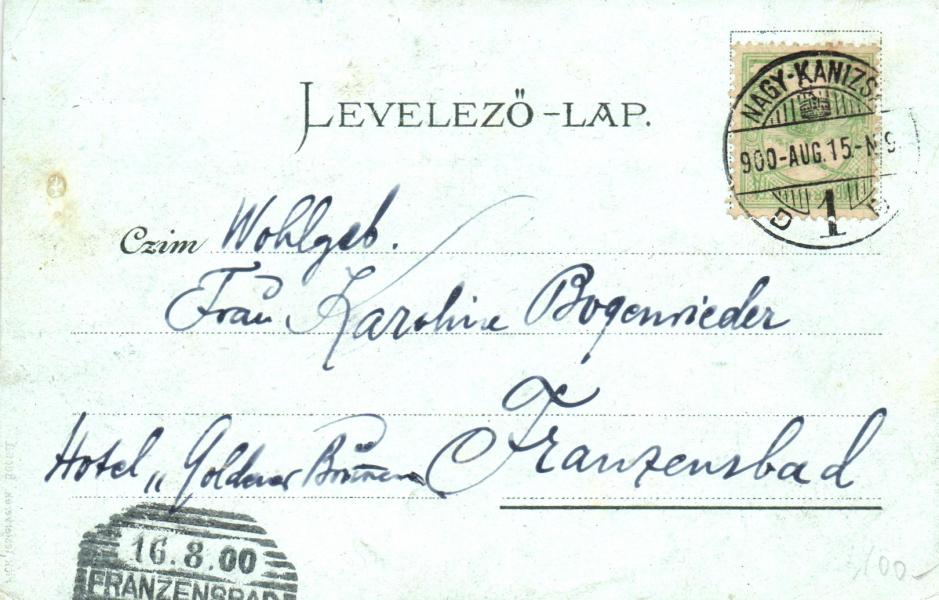 LEVELEZŐ-LAP.
NAGY-KANIZS
900-AUG.15.-N 9
1
Czim Wohlgeb.
Frau Karoline Bogenrieder
Franzensbad
Hotel „Goldener Brunnen
16.8.00
FRANZENSBAD
100